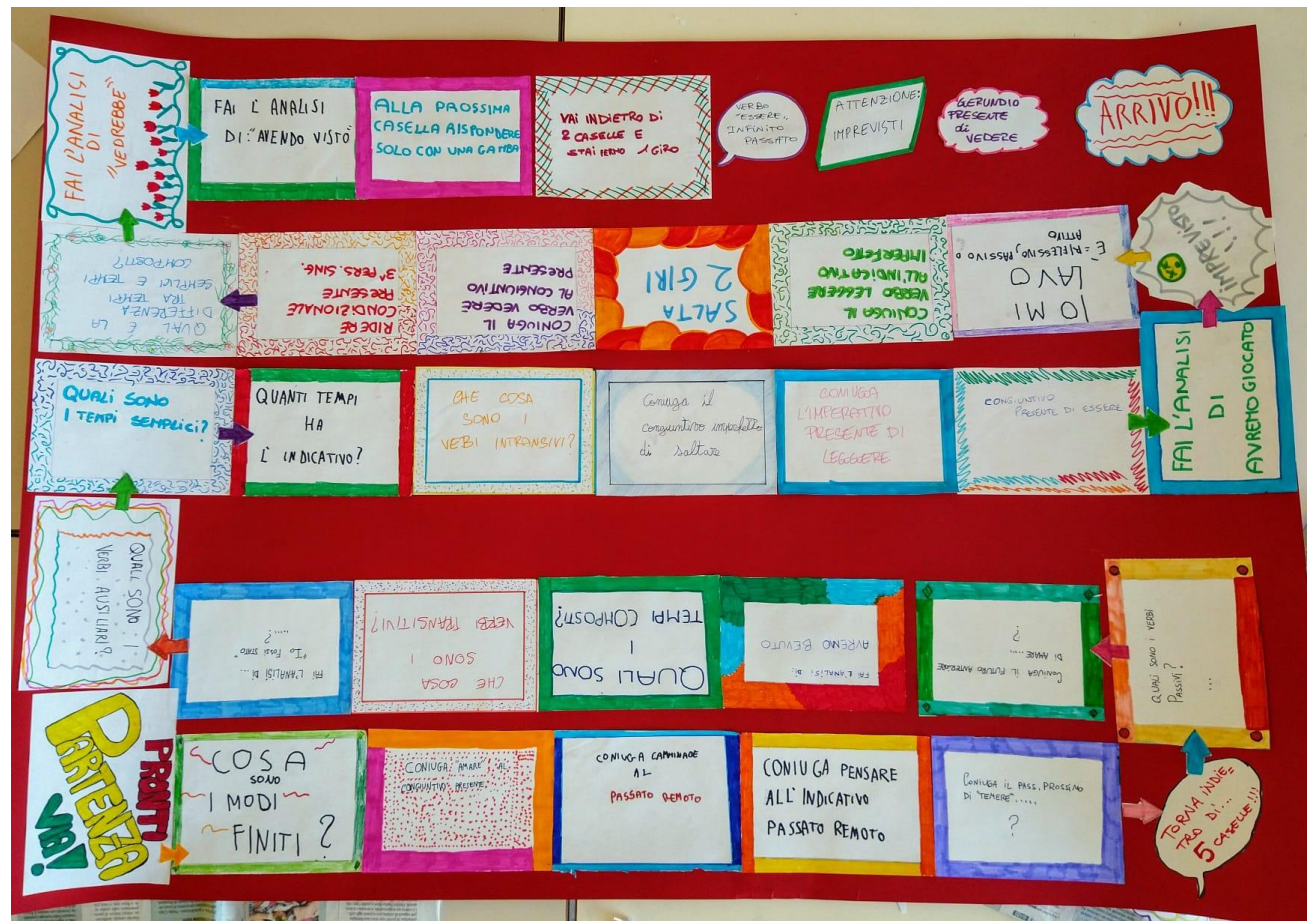 FAI L'ANALISI
DI
"VEDREBBE"
FAI L'ANALISI
DI: "AVENDO VISTO"
ALLA PROSSIMA
CASELLA RISPONDERE
SOLO CON UNA GAMBA
VAI INDIETRO DI
2 CASELLE E
STAI FERMO 1 GIRO
VERBO
"ESSERE"
INFINITO
PASSATO
ATTENZIONE:
IMPREVISTI
GERUNDIO
PRESENTE
di
VEDERE
ARRIVO!!!
QUAL È LA
DIFFERENZA
TRA TEMPI
SEMPLICI E TEMPI
COMPOSTI?
RIDERE
CONDIZIONALE
PRESENTE
3ª PERS. SING.
CONIUGA IL
VERBO VEDERE
AL CONGIUNTIVO
PRESENTE
SALTA
2 GIRI
CONIUGA IL
VERBO LEGGERE
ALL'INDICATIVO
IMPERFETO
IO MI
LAVO
È = RIFLESSIVO, PASSIVO O
ATTIVO
IMPREVISTO
!!!
QUALI SONO
I TEMPI SEMPLICI?
QUANTI TEMPI
HA
L'INDICATIVO?
CHE COSA
SONO I
VEBI INTRANSIVI?
Coniuga il
congiuntivo imperfetto
di saltare
CONIUGA
L'IMPERATIVO
PRESENTE DI
LEGGERE
CONGIUNTIVO
PRESENTE DI ESSERE
FAI L'ANALISI
DI
AVREMO GIOCATO
QUALI SONO I
VERBI AUSILIARI?
FAI L'ANALISI DI...
"Io FOSSI STATO"
....?
CHE COSA
SONO I
VERBI TRANSITIVI?
QUALI SONO
I
TEMPI COMPOSTI?
FAI L'ANALISI DI:
AVREMO BEVUTO
CONIUGA IL FUTURO ANTERIORE
DI AMARE ....
?
QUALI SONO I VERBI
PASSIVI?
...
PRONTI
PARTENZA
VIA!
COSA
SONO
I MODI
FINITI?
CONIUGA: AMARE AL
CONGIUNTIVO PRESENTE
CONIUGA CAMMINARE
AL
PASSATO REMOTO
CONIUGA PENSARE
ALL'INDICATIVO
PASSATO REMOTO
CONIUGA IL PASS. PROSSIMO
DI "TEMERE".....
?
TORNA INDIE=
TRO DI...
5 CASELLE!!!